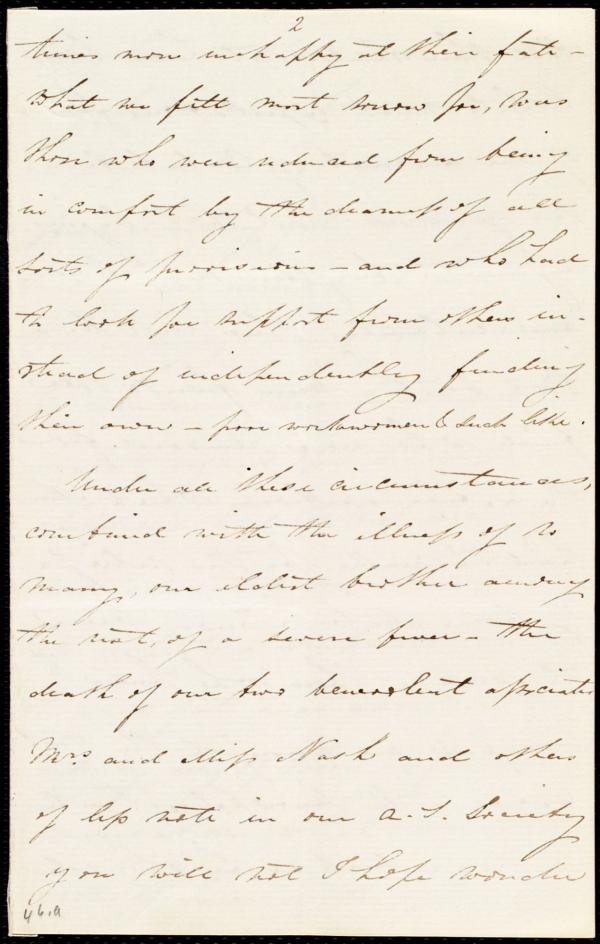 2
times more unhappy at their fate –
What we felt most sorrow for, was
those who were reduced from being
in comfort by the dearness of all
sorts of provisions – and who had
to look for support from others in-
stead of independently finding
their own – poor workwomen & such like.
Under all these circumstances,
combined with the illness of so
many, our eldest brother among
the rest, of a severe fever – the
death of our two benevolent associates
Mrs. and Miss Nash and others
of less note in our A.S. Society
you will not I hope wonder
46.a